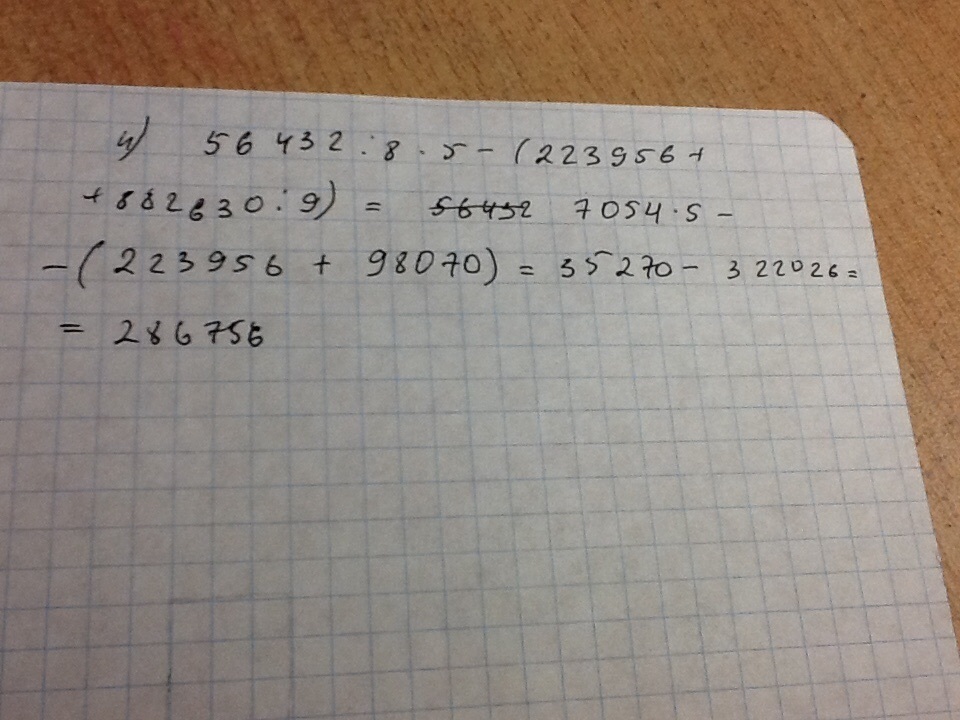 4) 56 432 : 8 · 5 - (223956 +
+ 882630 : 9) = 56432 7054 · 5 -
- (223956 + 98070) = 35270 - 322026 =
= 286756